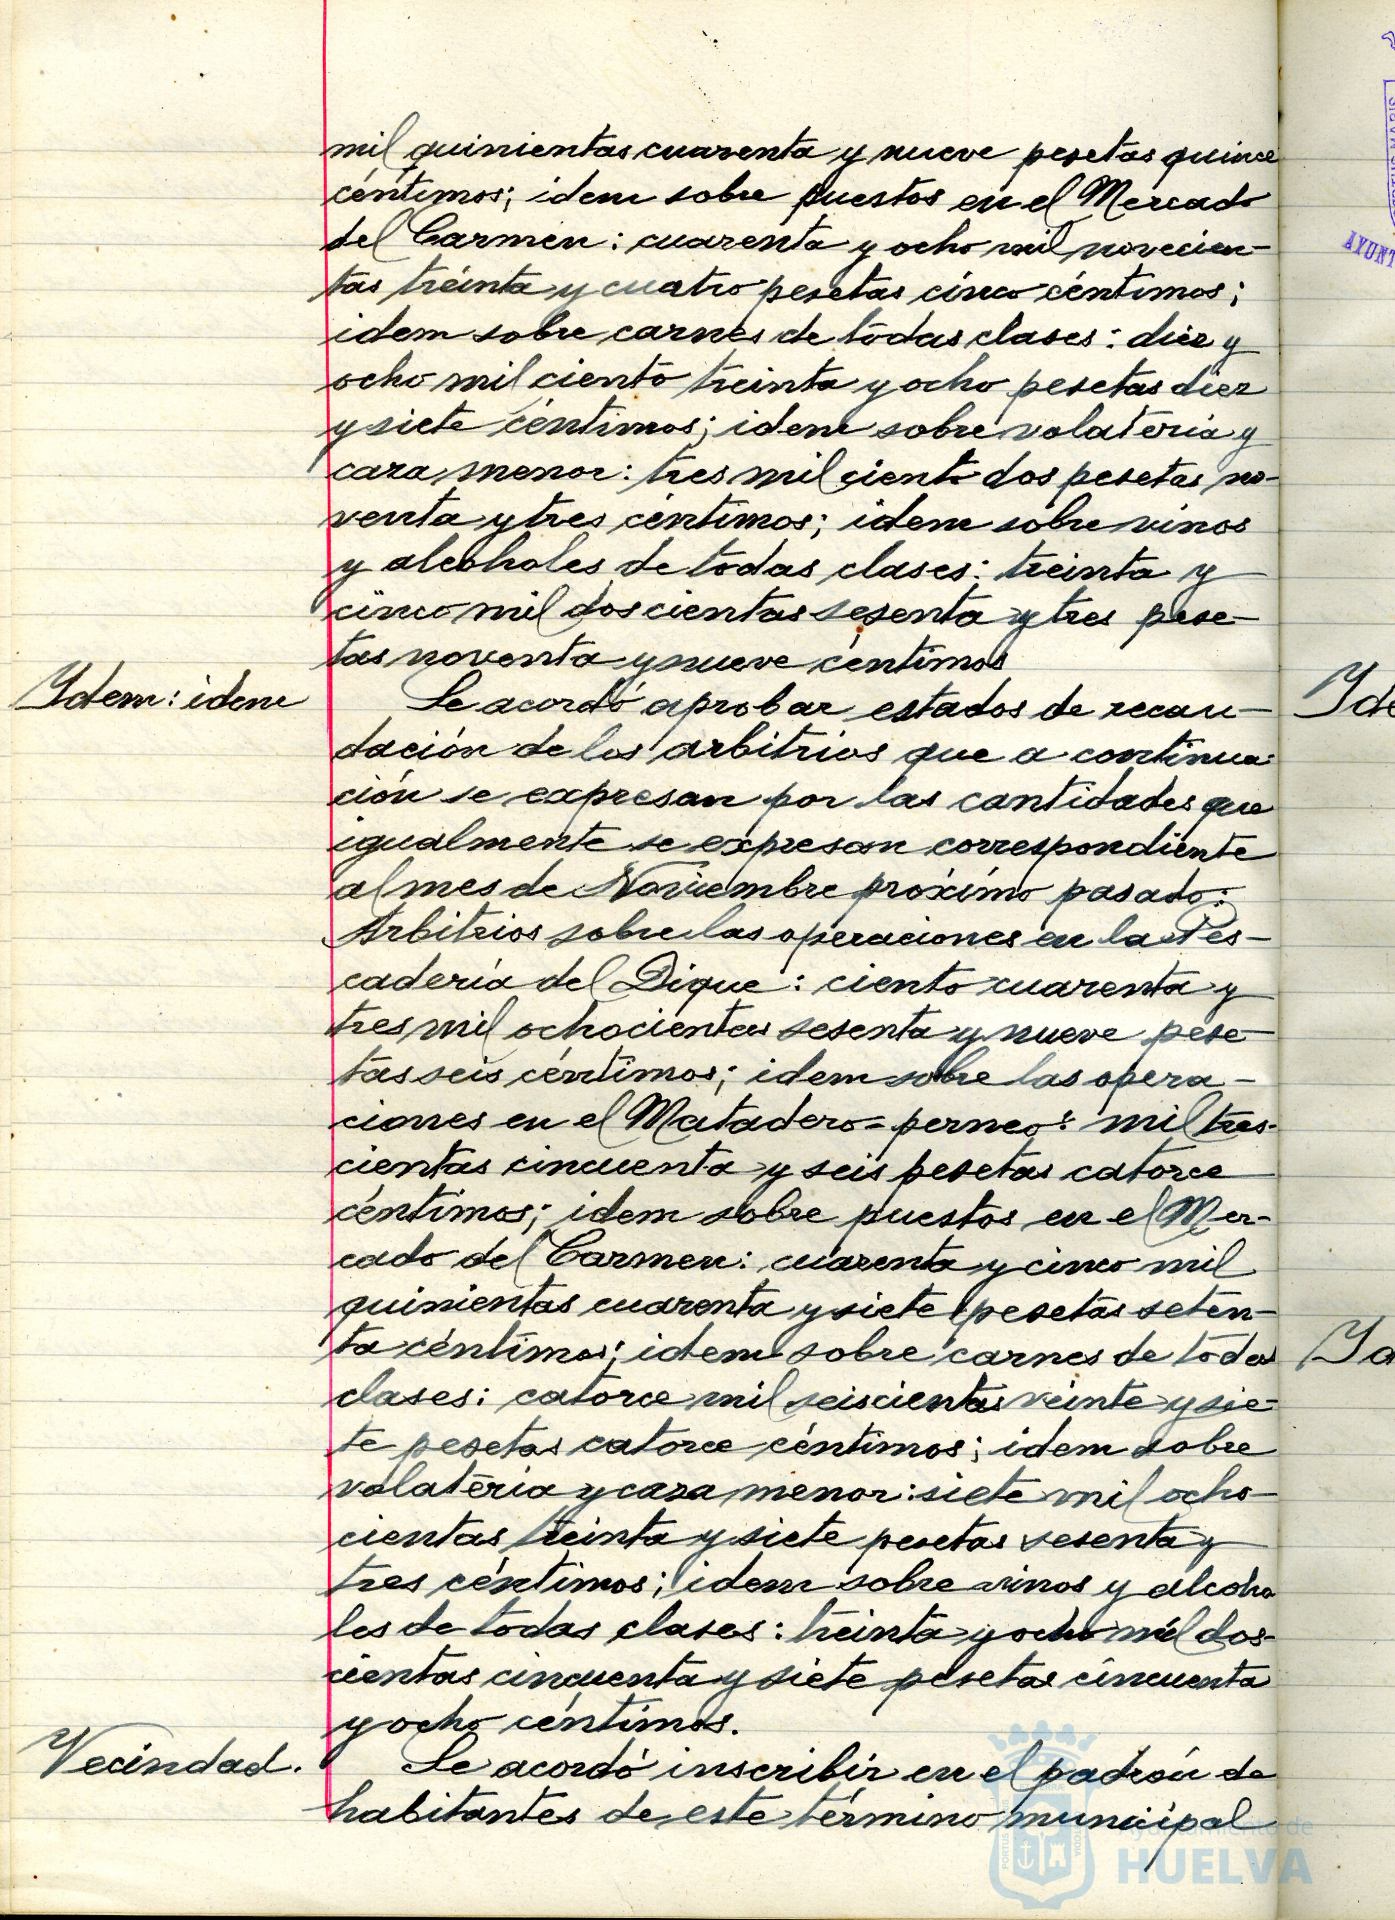 mil quinientas cuarenta y nueve pesetas quince
céntimos; idem sobre puestos en el Mercado
del Carmen: cuarenta y ocho mil novecien-
tas treinta y cuatro pesetas cinco céntimos;
idem sobre carnes de todas clases: diez y
ocho mil ciento treinta y ocho pesetas diez
y siete céntimos; idem sobre volateria y
caza menor: tres mil ciento dos pesetas no-
venta y tres céntimos; idem sobre vinos
y alcoholes de todas clases: treinta y
cinco mil doscientas sesenta y tres pese-
tas noventa y nueve céntimos
Ydem: idem
Se acordó aprobar estados de recau-
dación de los arbitrios que a continua-
ción se expresan por las cantidades que
igualmente se expresan correspondiente
al mes de Noviembre próximo pasado:
Arbitrios sobre las operaciones en la Pes-
cadería del Dique: ciento cuarenta y
tres mil ochocientas sesenta y nueve pese-
tas seis céntimos; idem sobre las opera-
ciones en el Matadero-perneo: mil tres-
cientas cincuenta y seis pesetas catorce
céntimos; idem sobre puestos en el Mer-
cado del Carmen: cuarenta y cinco mil
quinientas cuarenta y siete pesetas seten-
ta céntimos; idem sobre carnes de todas
clases: catorce mil seiscientas veinte y sie-
te pesetas catorce céntimos; idem sobre
volateria y caza menor: siete mil ocho-
cientas treinta y siete pesetas sesenta y
tres céntimos; idem sobre vinos y alcoho
les de todas clases: treinta y ocho mil dos-
cientas cincuenta y siete pesetas cincuenta
y ocho céntimos.
Vecindad.
Se acordó inscribir en el padrón de
habitantes de este término municipal
Ayuntamiento de
HUELVA